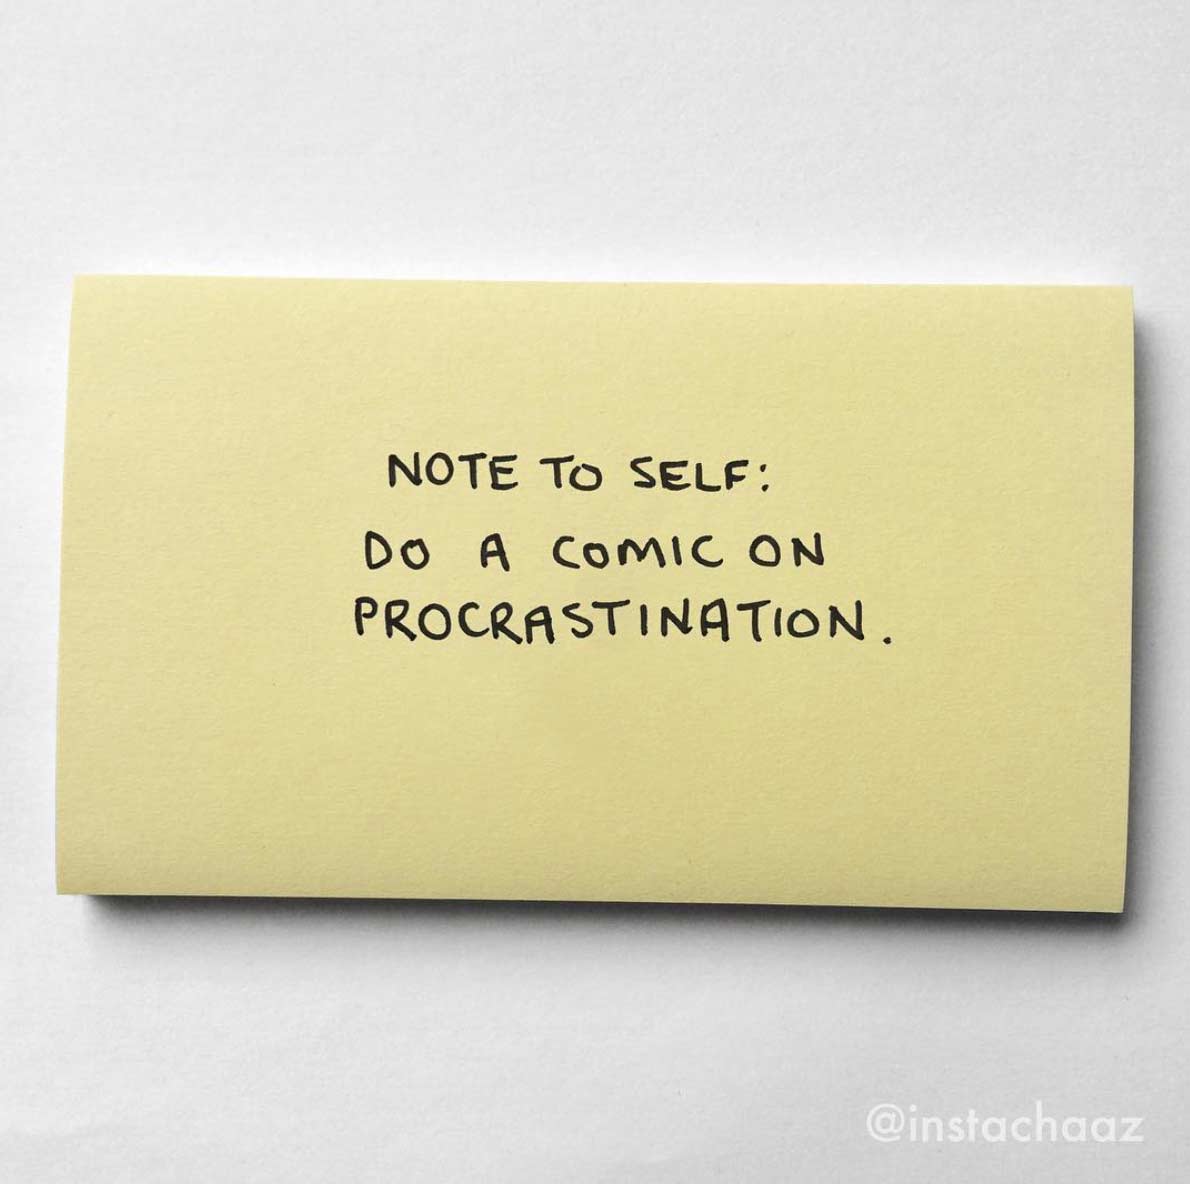 NOTE TO SELF:
DO A COMIC ON
PROCRASTINATION.
@instachaaz